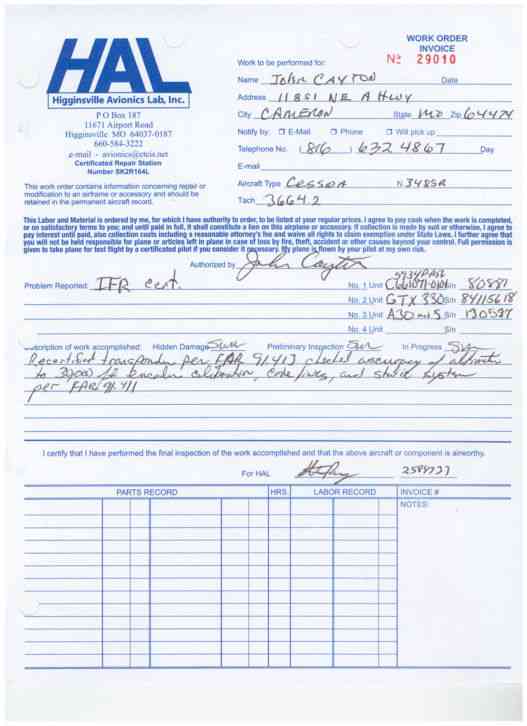 HAL
Higginsville Avionics Lab, Inc.
P O Box 187
11671 Airport Road
Higginsville MO 64037-0187
660-584-3222
e-mail - avionics@ctcis.net
Certified Repair Station
Number SK2R164L
This work order contains information concerning repair or
modification to an airframe or accessory and should be
retained in the permanent aircraft record.
WORK ORDER
INVOICE
Nº 29010
Work to be performed for:
Name John CAYTON Date
Address 11851 NE A Hwy
City CAMERON State MO Zip 64474
Notify by: E-Mail Phone Will pick up
Telephone No. (816) 632 4867 Day
E-mail
Aircraft Type Cessna N 3485R
Tach 3664.2
This Labor and Material is ordered by me, for which I have authority to order, to be listed at your regular prices. I agree to pay cash when the work is completed,
or on satisfactory terms to you; and until paid in full, it shall constitute a lien on this airplane or accessory. If collection is made by suit or otherwise, I agree to
pay interest until paid, also collection costs including a reasonable attorney's fee and waive all rights to claim exemption under State Laws. I further agree that
you will not be held responsible for plane or articles left in plane in case of loss by fire, theft, accident or other causes beyond your control. Full permission is
given to take plane for test flight by a certificated pilot if you consider it necessary. My plane is flown by your pilot at my own risk.
Authorized by John Cayton
Problem Reported: IFR cert.
No. 1 Unit S/n 80887
No. 2 Unit GTX 330 S/n 84115618
No. 3 Unit A30 S/n 130587
No. 4 Unit S/n
Description of work accomplished: Hidden Damage Preliminary Inspection In Progress
Recertified transponder per FAR 91.413 checked accuracy of altimeter
to encoder calibration, code lines, and static system
per FAR 91.411
I certify that I have performed the final inspection of the work accomplished and that the above aircraft or component is airworthy.
For HAL
PARTS RECORD HRS. LABOR RECORD INVOICE #
NOTES: